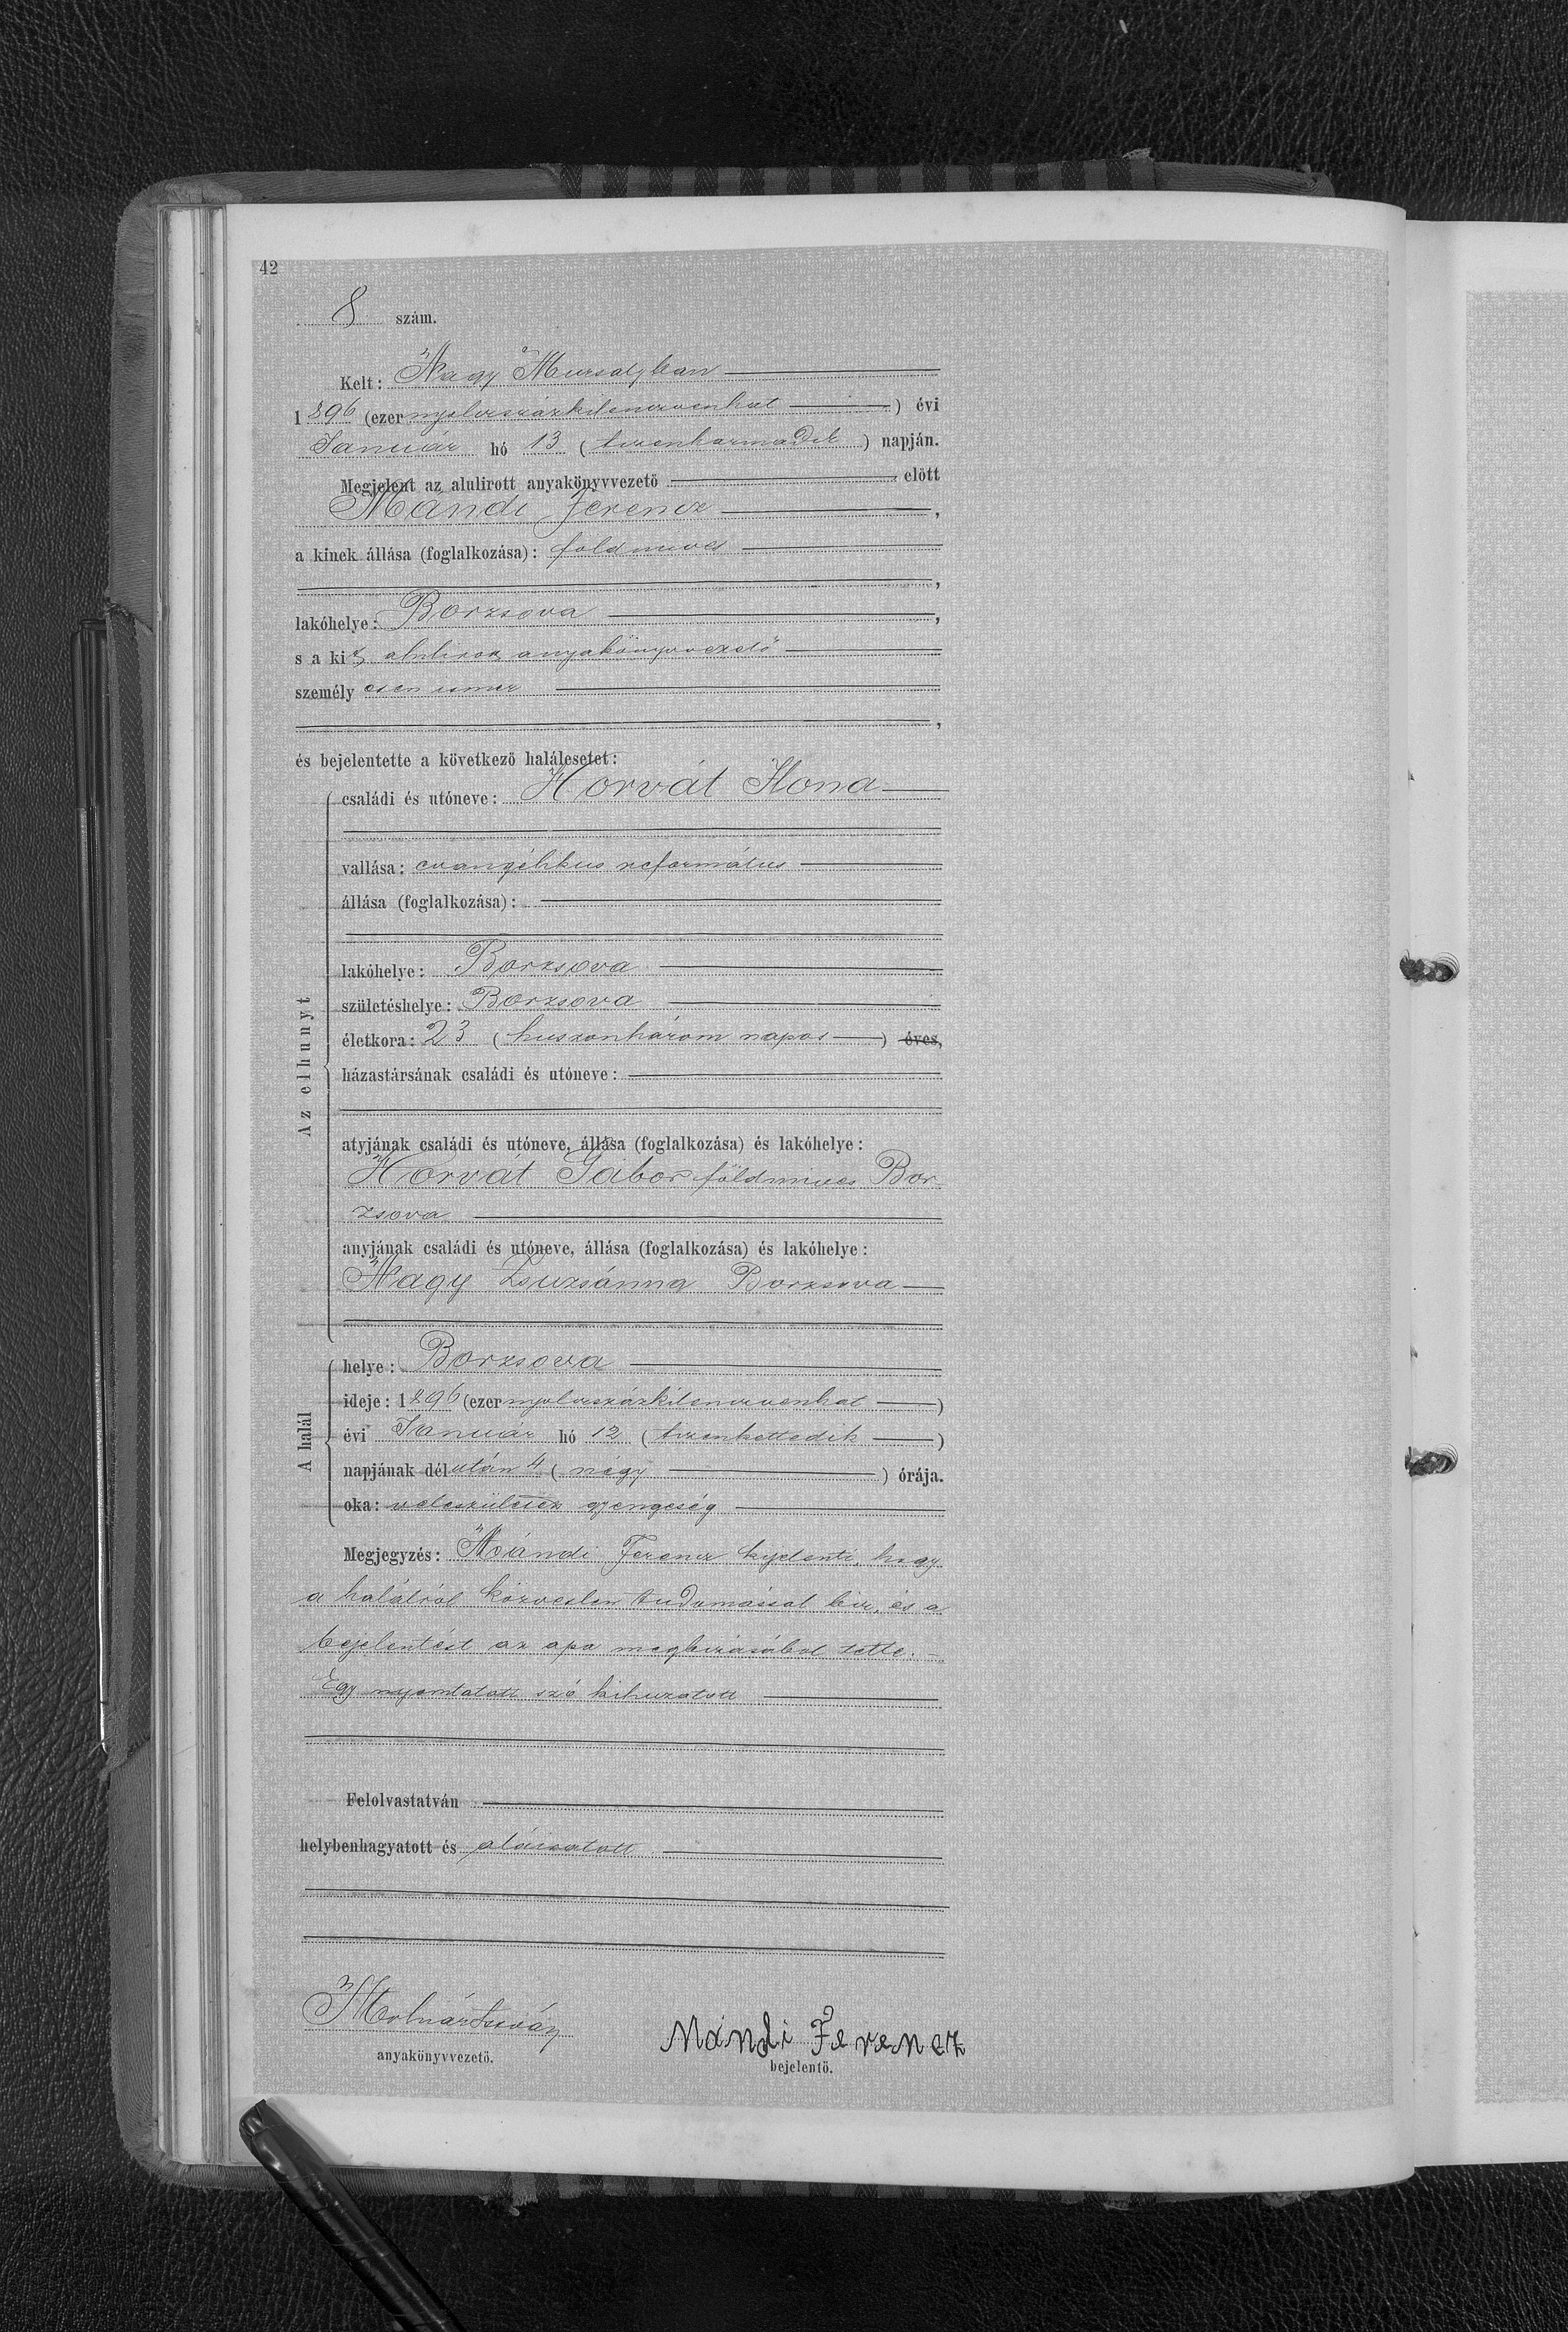 42
8 szám.
Kelt: Nagy Muzsalyban
1896 (ezer nyolczszázkilenczvenhat) évi
Január hó 13 (tizenharmadik) napján.
Megjelent az alulirott anyakönyvvezető előtt
Mándi Ferencz,
a kinek állása (foglalkozása): földmives
,
lakóhelye: Borzsova,
s a kit alulirott anyakönyvvezető
személyesen ismer
,
és bejelentette a következő halálesetet:
Az elhunyt
családi és utóneve: Horvát Ilona
vallása: evangélikus református
állása (foglalkozása):
lakóhelye: Borzsova
születéshelye: Borzsova
életkora: 23 (huszonhárom napos) éves,
házastársának családi és utóneve:
atyjának családi és utóneve, állása (foglalkozása) és lakóhelye:
Horvát Gábor földmives Bor
zsova
anyjának családi és utóneve, állása (foglalkozása) és lakóhelye:
Nagy Zsuzsánna Borzsova
A halál
helye: Borzsova
ideje: 1896 (ezer nyolczszázkilenczvenhat)
évi Január hó 12 (tizenkettedik)
napjának délután 4 (négy) órája.
oka: veleszületett gyengeség
Megjegyzés: Mándi Ferencz kijelenti, hogy
a halálról közvetlen tudomással bir, és a
bejelentést az apa megbizásából tette. –
Egy nyomtatott szó kihuzatott
Felolvastatván
helybenhagyatott és aláiratott
Molnár István
anyakönyvvezető.
Mándi Ferencz
bejelentő.